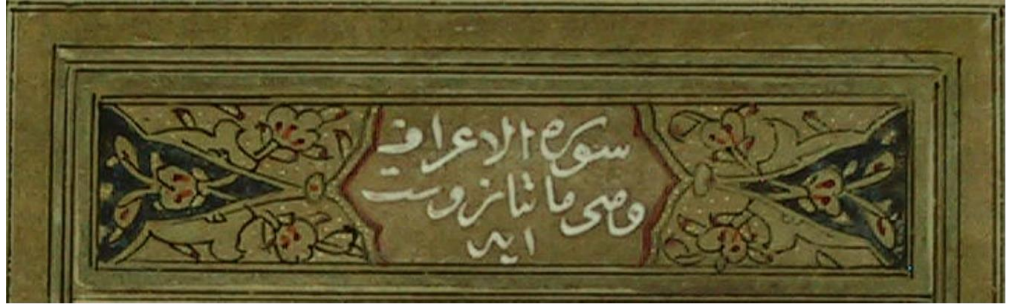 سورة الاعراف
وهى مائتان وست
اية